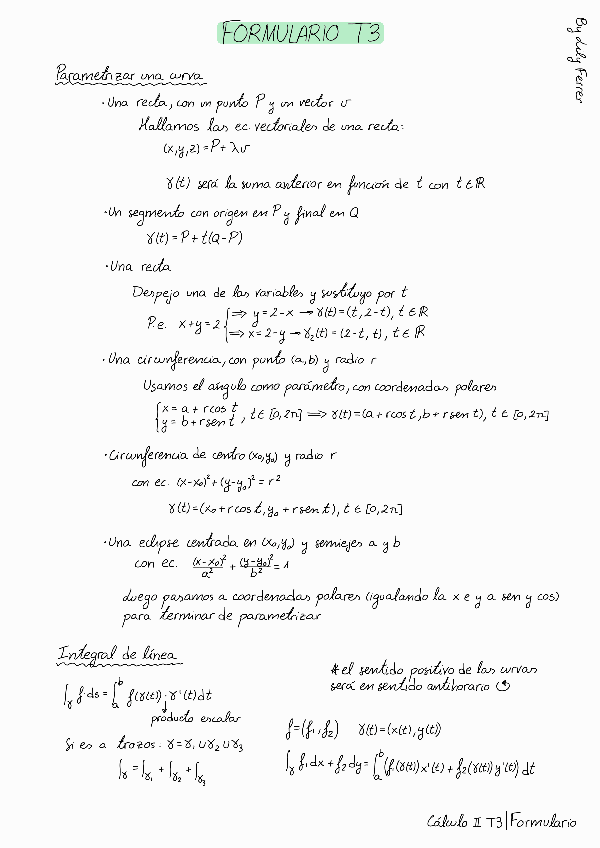 FORMULARIO T3
By Luly Ferrer
Parametrizar una curva
· Una recta, con un punto P y un vector v
Hallamos las ec. vectoriales de una recta:
(x,y,z) = P + λv
γ(t) será la suma anterior en función de t con t ∈ ℝ
· Un segmento con origen en P y final en Q
γ(t) = P + t(Q-P)
· Una recta
Despejo una de las variables y sustituyo por t
P.e. x+y=2 { ⇒ y=2-x → γ(t)=(t, 2-t), t ∈ ℝ
⇒ x=2-y → γ₂(t)=(2-t, t), t ∈ ℝ
· Una circunferencia, con punto (a,b) y radio r
Usamos el ángulo como parámetro, con coordenadas polares
{ x = a + r cos t
y = b + r sen t , t ∈ [0,2π] ⇒ γ(t)=(a+r cos t, b+r sen t), t ∈ [0,2π]
· Circunferencia de centro (x₀,y₀) y radio r
con ec. (x-x₀)² + (y-y₀)² = r²
γ(t)=(x₀+r cos t, y₀+r sen t), t ∈ [0,2π]
· Una eclipse centrada en (x₀,y₀) y semiejes a y b
con ec. (x-x₀)²/a² + (y-y₀)²/b² = 1
Luego pasamos a coordenadas polares (igualando la x e y a sen y cos)
para terminar de parametrizar
Integral de línea
∫γ f·ds = ∫ₐᵇ f(γ(t))·γ'(t)dt
↓
producto escalar
Si es a trozos: γ=γ₁∪γ₂∪γ₃
∫γ = ∫γ₁ + ∫γ₂ + ∫γ₃
* el sentido positivo de las curvas
será en sentido antihorario ↺
f=(f₁,f₂) γ(t)=(x(t),y(t))
∫γ f₁dx + f₂dy = ∫ₐᵇ (f₁(γ(t))x'(t) + f₂(γ(t))y'(t))dt
Cálculo II T3|Formulario